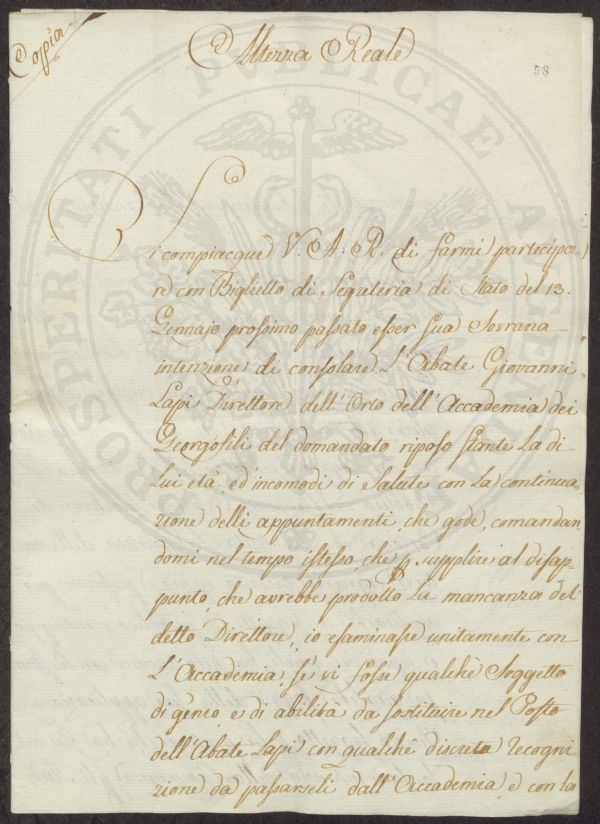 Copia
Altezza Reale
58
Si compiacque V. A. R. di farmi participa-
re con Biglietto di Segreteria di Stato del 13.
Gennajo prossimo passato esser sua Sovrana
intenzione di consolare L'Abate Giovanni
Lapi Direttore dell'Orto dell'Accademia dei
Georgofili del domandato riposo stante La di
Lui età ed'incomodi di Salute con La continua
zione delli appuntamenti, che gode, comandan
domi nel tempo istesso, che p supplire al disap-
punto, che avrebbe prodotto La mancanza del
detto Direttore, io esaminassi unitamente con
L'Accademia, se vi fosse qualche Soggetto
di genio e di abilità da sostituire nel Posto
dell'Abate Lapi con qualche discreta recogni
zione da passarseli dall'Accademia, e con la
PROSPERITATI PUBLICAE AUGENDAE